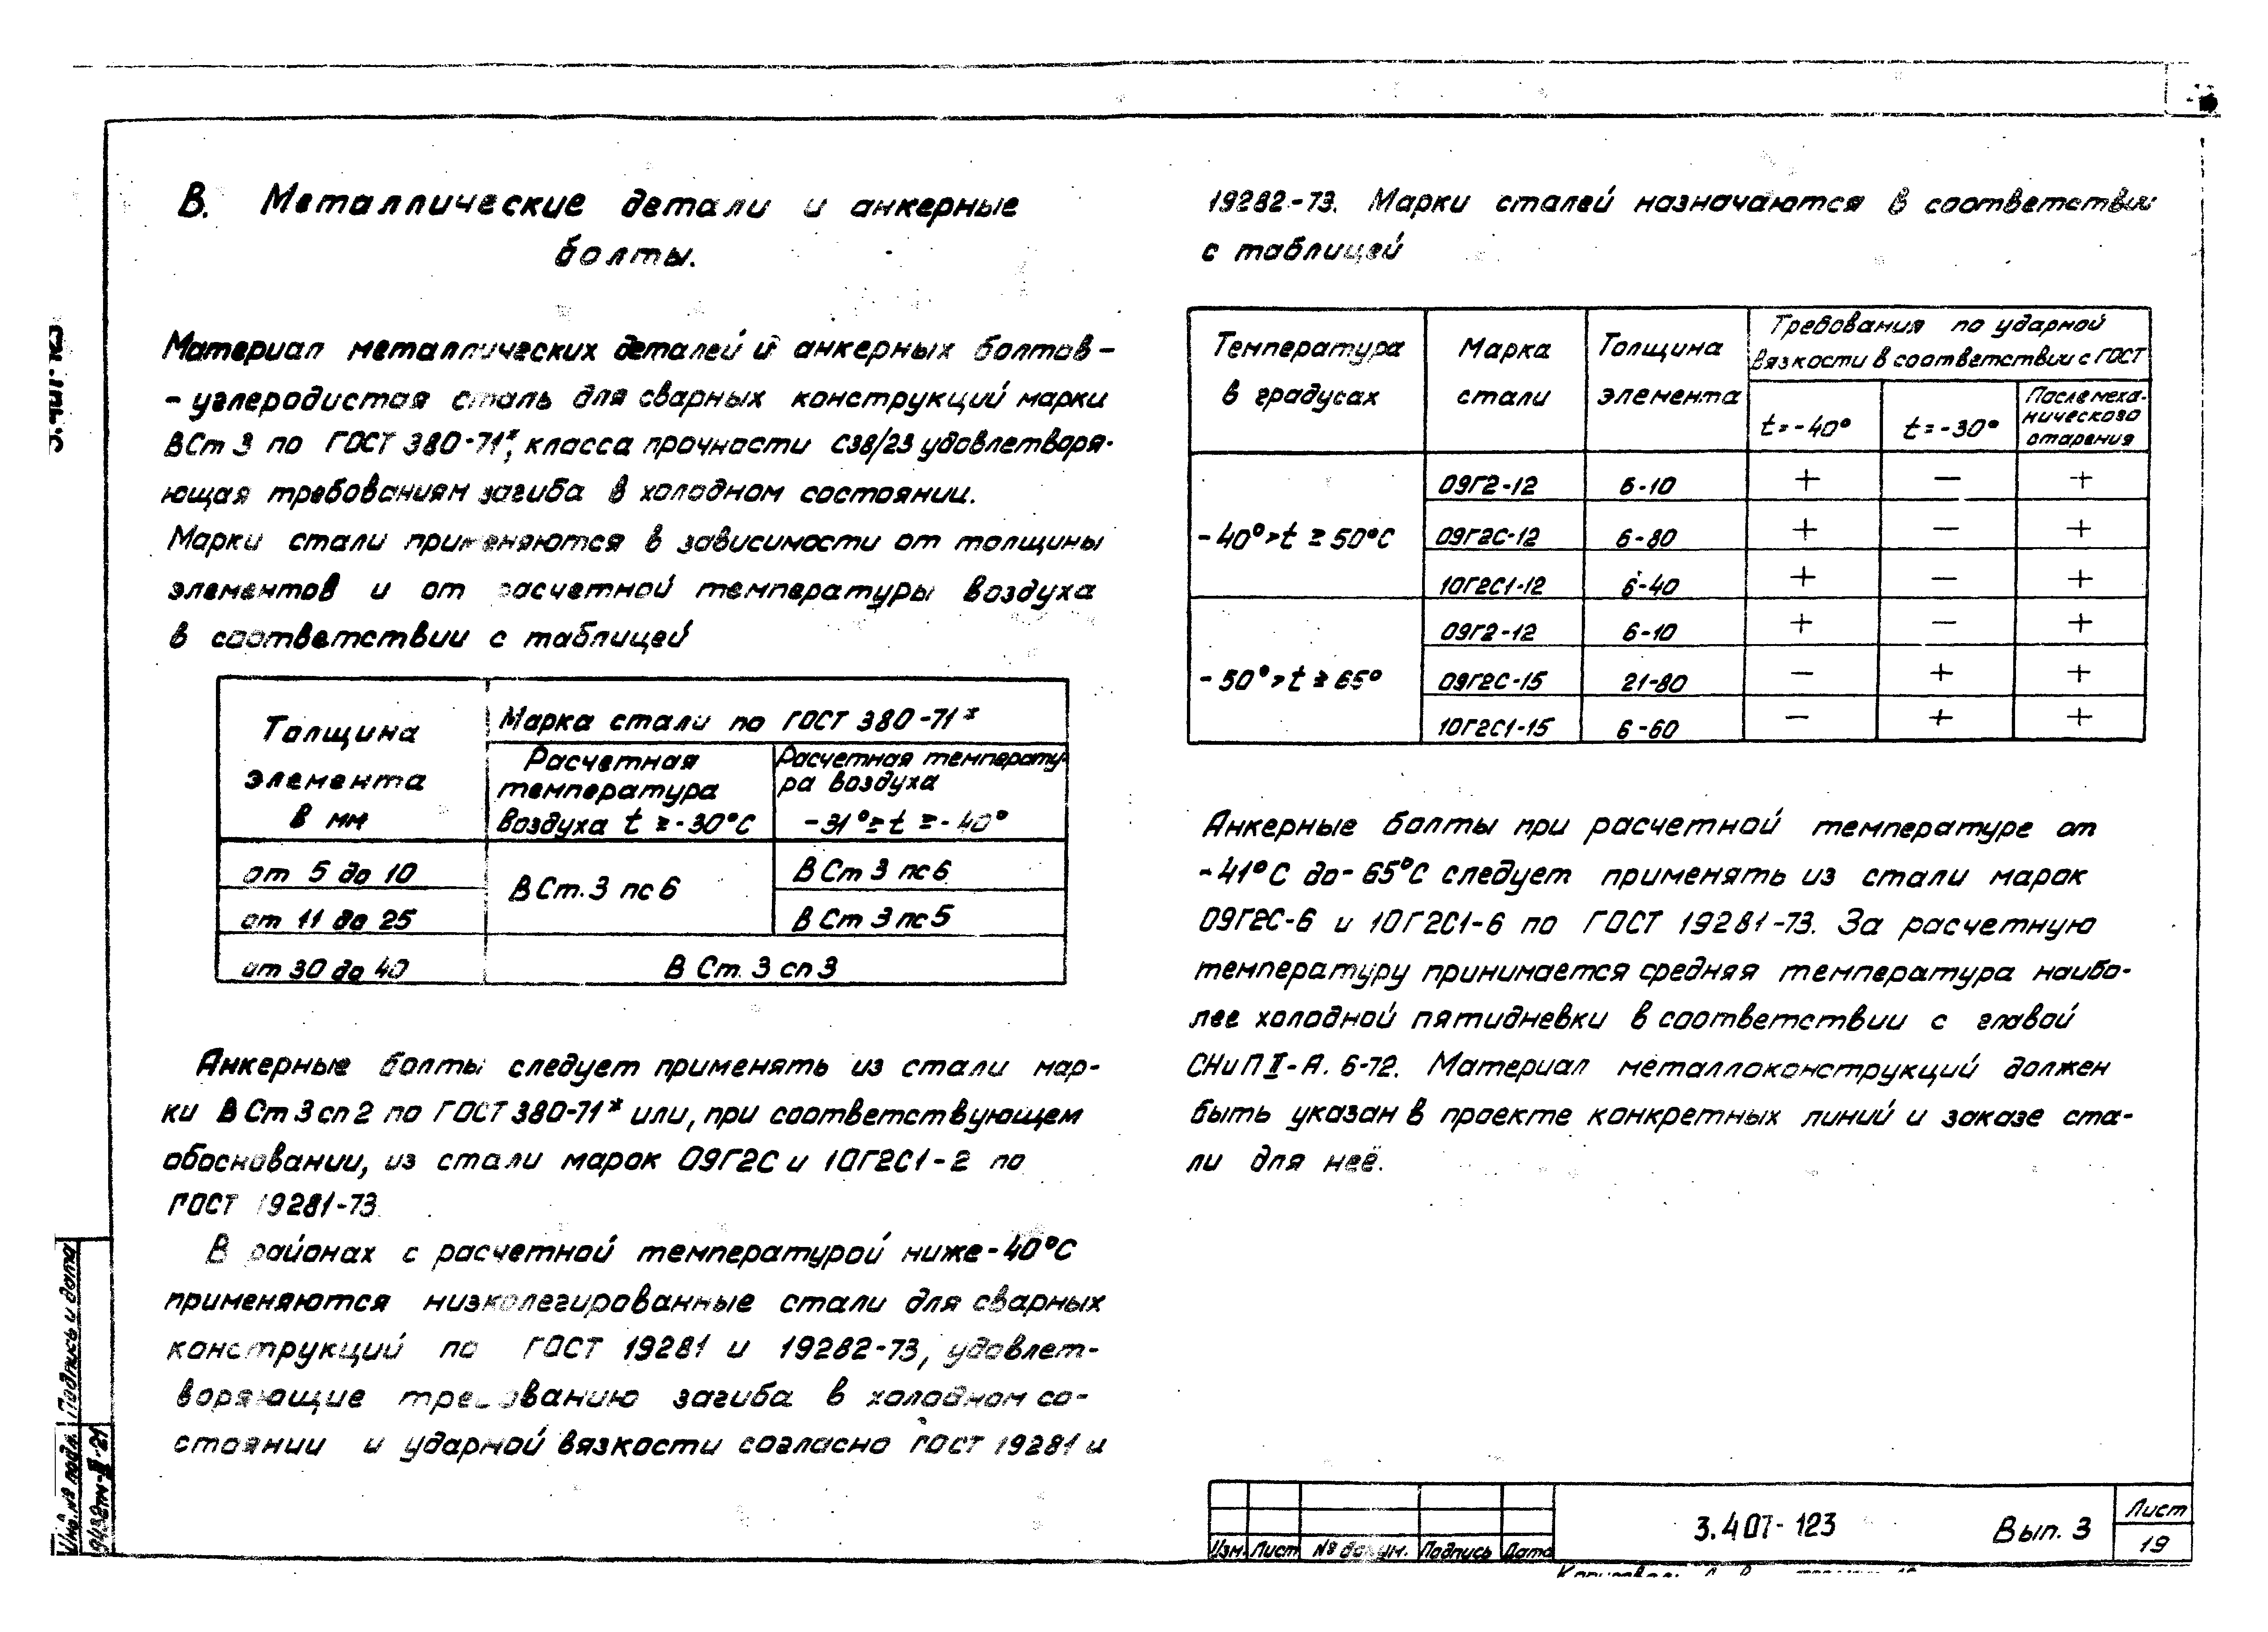 В. Металлические детали и анкерные
болты.
Материал металлических деталей и анкерных болтов -
- углеродистая сталь для сварных конструкций марки
ВСт 3 по ГОСТ 380-71*, класса прочности С38/23 удовлетворя-
ющая требованиям загиба в холодном состоянии.
Марки стали применяются в зависимости от толщины
элементов и от расчетной температуры воздуха
в соответствии с таблицей
Толщина
элемента
в мм
Марка стали по ГОСТ 380-71*
Расчетная
температура
воздуха t ≥ -30°С
Расчетная температу-
ра воздуха
-31° ≥ t ≥ -40°
от 5 до 10
В Ст. 3 пс 6
В Ст 3 пс 6
от 11 до 25
В Ст 3 пс 5
от 30 до 40
В Ст. 3 сп 3
Анкерные болты следует применять из стали мар-
ки В Ст 3 сп 2 по ГОСТ 380-71* или, при соответствующем
обосновании, из стали марок 09Г2С и 10Г2С1-2 по
ГОСТ 19281-73.
В районах с расчетной температурой ниже -40°С
применяются низколегированные стали для сварных
конструкций по ГОСТ 19281 и 19282-73, удовлет-
воряющие требованию загиба в холодном со-
стоянии и ударной вязкости согласно ГОСТ 19281 и
19282-73. Марки сталей назначаются в соответствии
с таблицей
Температура
в градусах
Марка
стали
Толщина
элемента
Требования по ударной
вязкости в соответствии с ГОСТ
t = -40°
t = -30°
После меха-
нического
старения
-40° > t ≥ 50°С
09Г2-12 6-10 + — +
09Г2С-12 6-80 + — +
10Г2С1-12 6-40 + — +
-50° > t ≥ 65°
09Г2-12 6-10 + — +
09Г2С-15 21-80 — + +
10Г2С1-15 6-60 — + +
Анкерные болты при расчетной температуре от
-41°С до -65°С следует применять из стали марок
09Г2С-6 и 10Г2С1-6 по ГОСТ 19281-73. За расчетную
температуру принимается средняя температура наибо-
лее холодной пятидневки в соответствии с главой
СНиП II-А. 6-72. Материал металлоконструкций должен
быть указан в проекте конкретных линий и заказе ста-
ли для неё.
Изм. Лист № докум. Подпись Дата
3.407-123 Вып. 3
Лист
19
Инв. № подл. Подпись и дата
9432тм-II-21